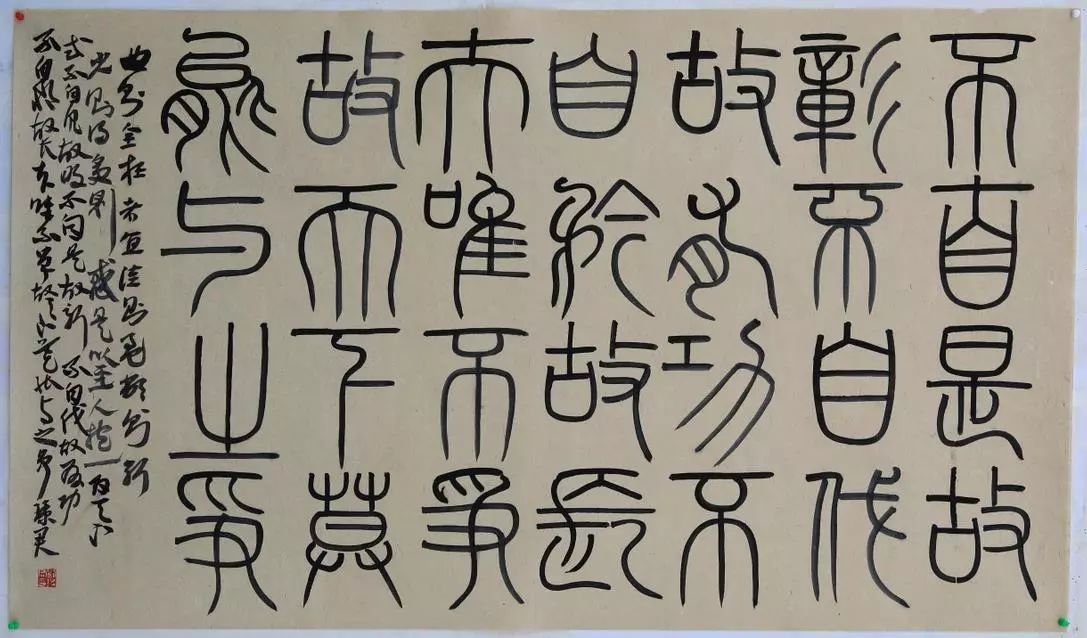 不自是故
彰不自伐
故有功不
自矜故長
夫唯不爭
故天下莫
能与之爭
曲则全枉者直洼则盈敝则新
少则得多则惑是以圣人抱一为天下
式不自见故明不自是故彰不自伐故有功
不自矜故长夫唯不争故天下莫能与之争